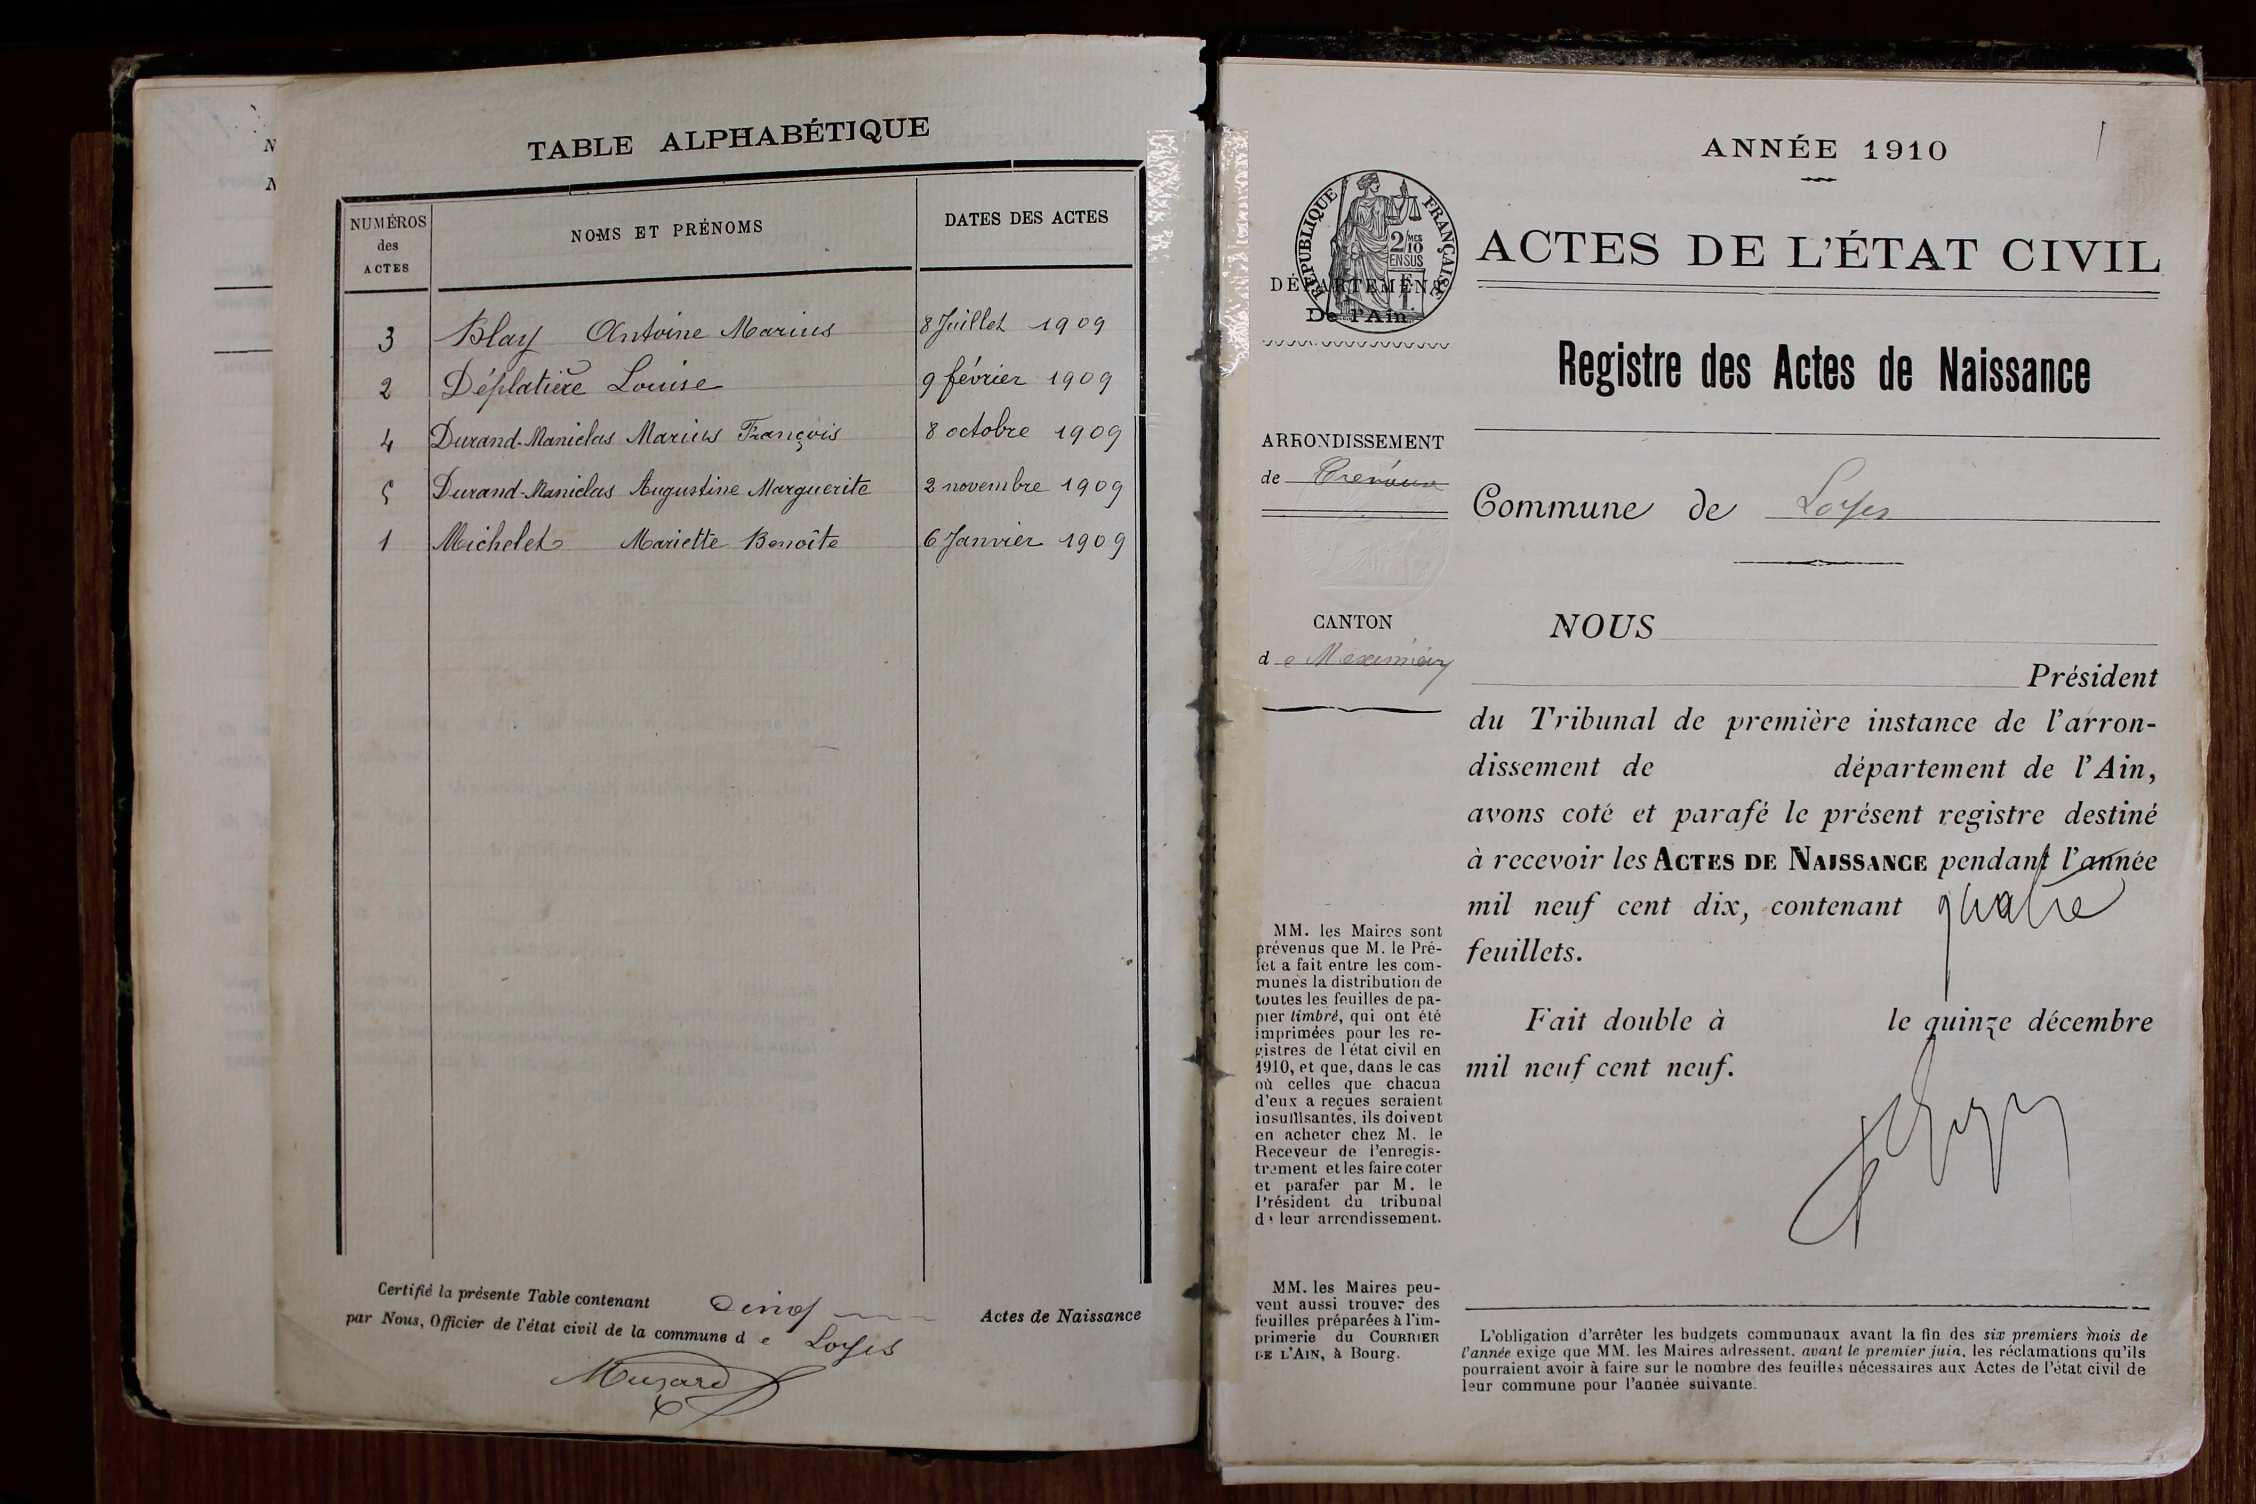 TABLE ALPHABÉTIQUE
NUMÉROS
des
ACTES
NOMS ET PRÉNOMS
DATES DES ACTES
3 Blay Antoine Marius 8 Juillet 1909
2 Déplatière Louise 9 février 1909
4 Durand-Maniclas Marius François 8 octobre 1909
5 Durand-Maniclas Augustine Marguerite 2 novembre 1909
1 Michelet Mariette Benoîte 6 Janvier 1909
Certifié la présente Table contenant cinq Actes de Naissance
par Nous, Officier de l'état civil de la commune de Loyes
ANNÉE 1910
RÉPUBLIQUE FRANÇAISE
2/10
MES
EN SUS
DÉPARTEMENT
De l'Ain
ACTES DE L'ÉTAT CIVIL
Registre des Actes de Naissance
ARRONDISSEMENT
de Trévoux
Commune de Loyes
CANTON
de Meximieux
NOUS
Président
du Tribunal de première instance de l'arron-
dissement de département de l'Ain,
avons coté et parafé le présent registre destiné
à recevoir les ACTES DE NAISSANCE pendant l'année
mil neuf cent dix, contenant quatre
feuillets.
Fait double à le quinze décembre
mil neuf cent neuf.
MM. les Maires sont
prévenus que M. le Pré-
fet a fait entre les com-
munes la distribution de
toutes les feuilles de pa-
pier timbré, qui ont été
imprimées pour les re-
gistres de l'état civil en
1910, et que, dans le cas
où celles que chacun
d'eux a reçues seraient
insuffisantes, ils doivent
en acheter chez M. le
Receveur de l'enregis-
trement et les faire coter
et parafer par M. le
Président du tribunal
de leur arrondissement.
MM. les Maires peu-
vent aussi trouver des
feuilles préparées à l'im-
primerie du COURRIER
DE L'AIN, à Bourg.
L'obligation d'arrêter les budgets communaux avant la fin des six premiers mois de
l'année exige que MM. les Maires adressent, avant le premier juin, les réclamations qu'ils
pourraient avoir à faire sur le nombre des feuilles nécessaires aux Actes de l'état civil de
leur commune pour l'année suivante.